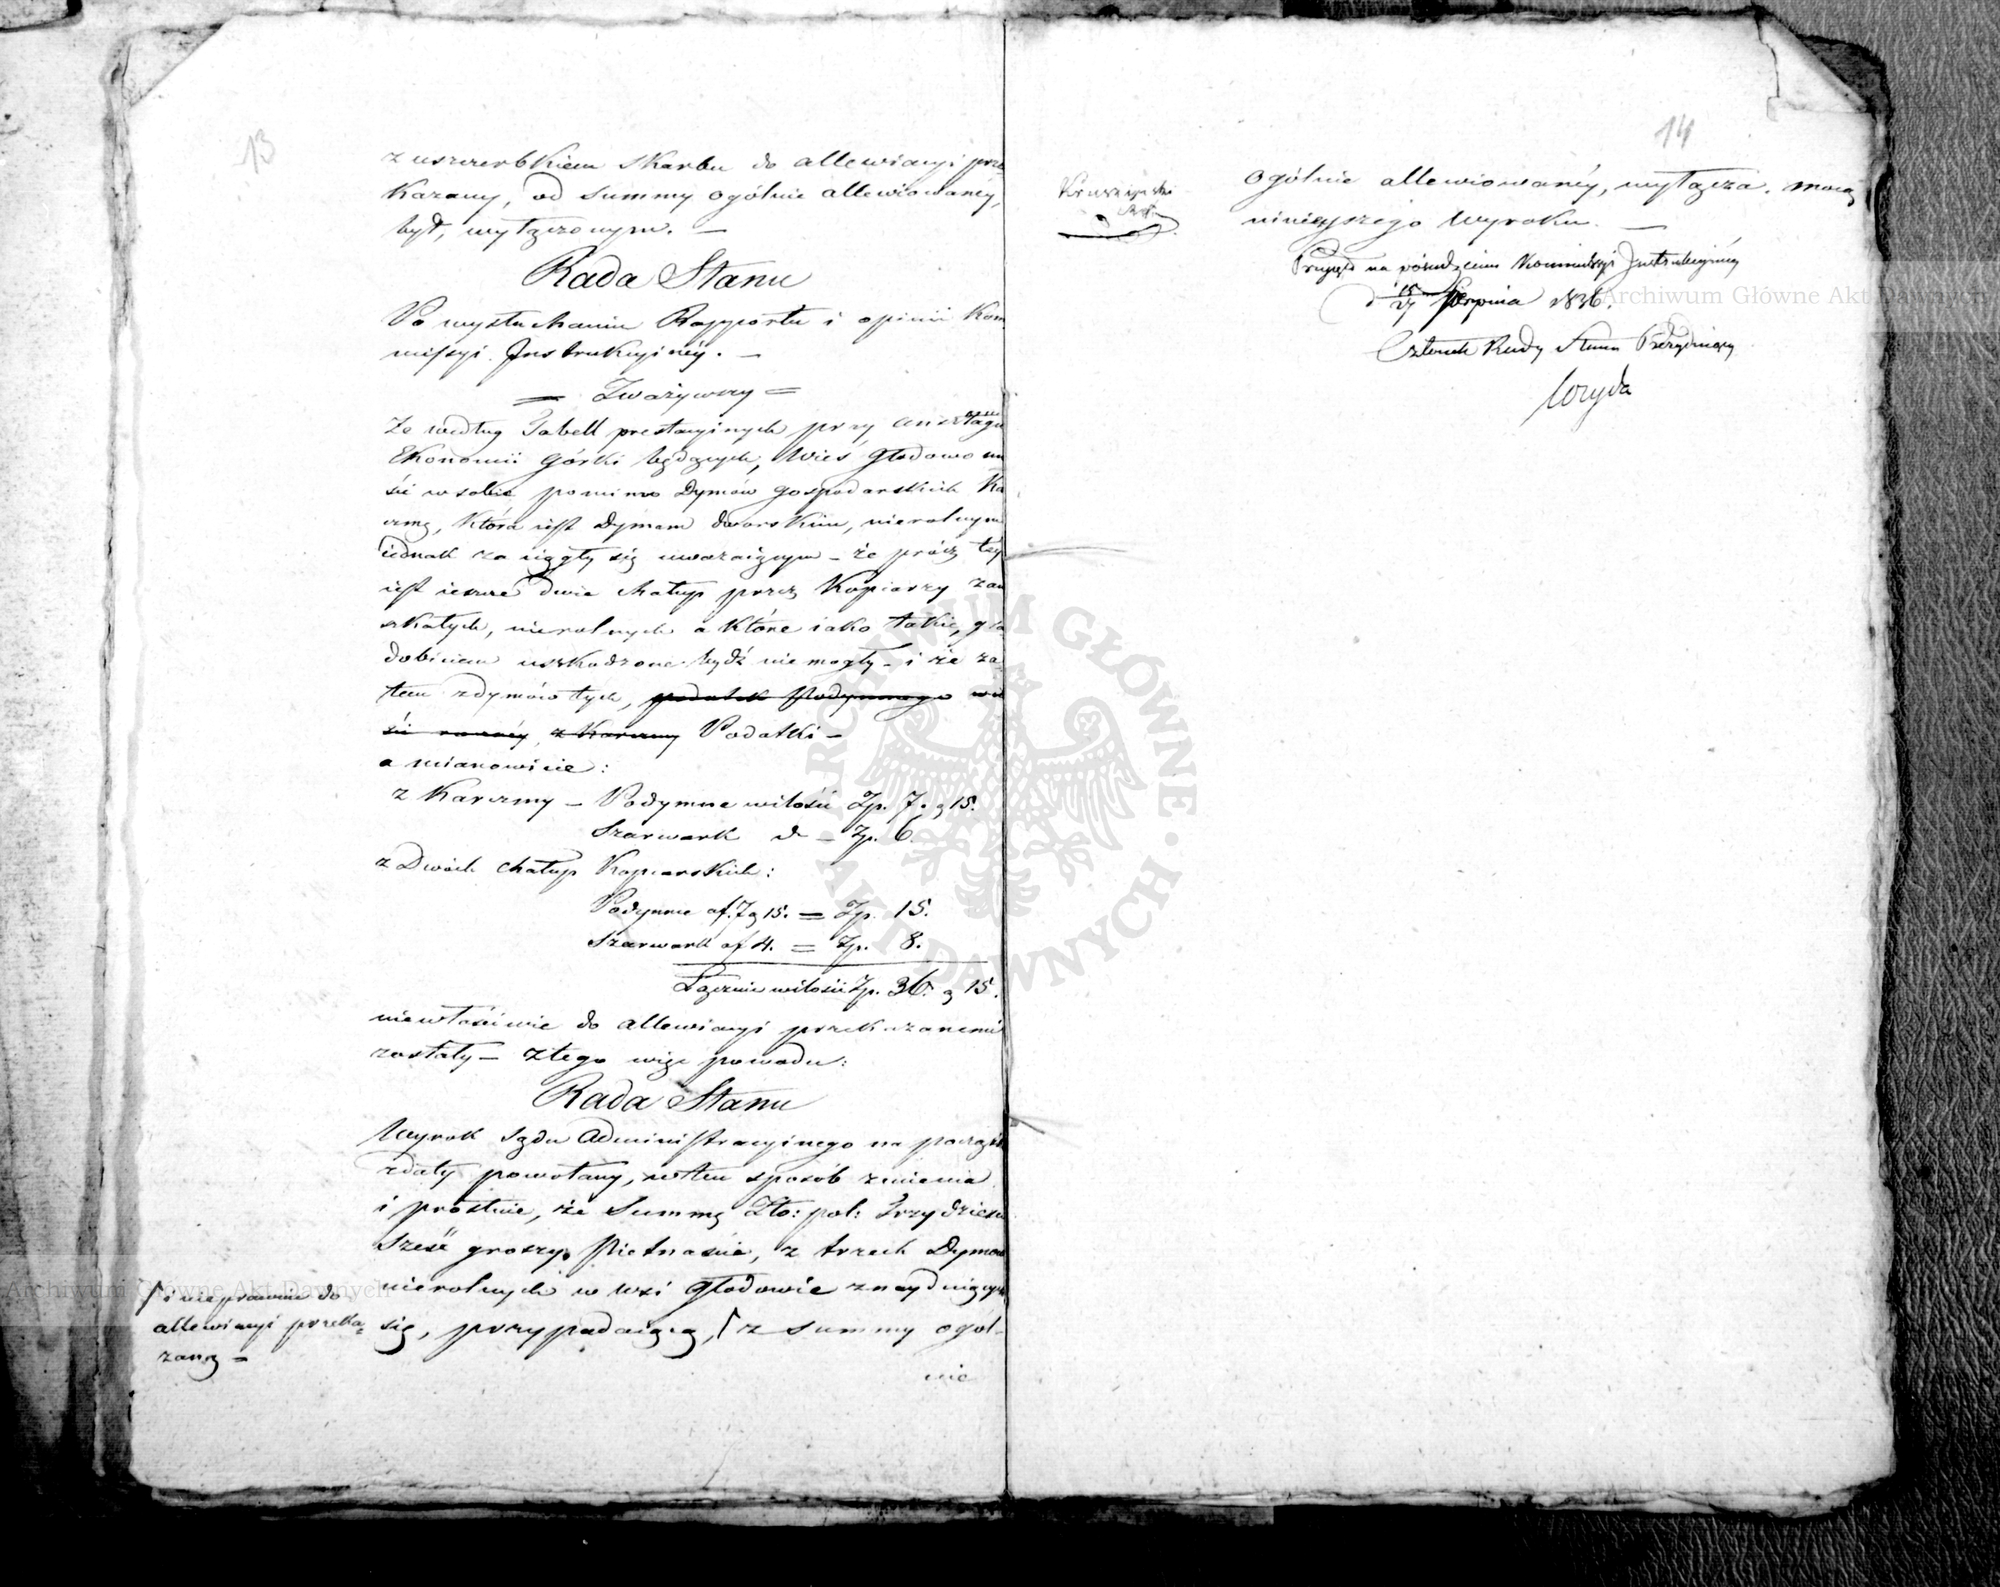 13
z uszczerbkiem Skarbu do allewiacyi prze
kazany, od Summy ogólnie allewiowanéy,
był, wyłączonym. —
Rada Stanu
Po wysłuchaniu Rapportu i opinii Kom
missyi Instrukcyinéy. —
= Zważywszy =
Ze według Tabell prestacyinych przy anszlagu
Ekonomii Górki będących, Wieś Głodowo mie
ści w sobie pomimo Dymów gospodarskich Ka
czmę, która iest Dymem dworskim, nierolnym
iednak za ciągły się uważaiącym — że prócz téy
iest ieszcze dwie chałup przez Kopiarzy zam
szkałych, nierolnych a które iako takie, gra
dobiciem uszkodzone bydź nie mogły — i że za-
tem z dymów tych, podatek Podymnego
z Karczmy Podatki —
a mianowicie:
z Karczmy — Podymne wilości Zp. 7. g 15.
Szarwark d — Zp. 6
z Dwóch chałup Kopiarskich:
Podymne af. 7 g 15. = Zp. 15.
Szarwark af 4. = Zp. 8.
Łącznie wilości Zp. 36. g 15.
niewłaściwie do allewiacyi przekazanemi
zostały — z tego więc powodu:
Rada Stanu
Wyrok Sądu Administracyinego na początk
zdaty powołany, w ten sposób zmienia
i prostuie, że Summę Zło: pol: Trzydzieści
sześć groszy Pietnaście, z trzech Dymów
nierolnych w wsi Głodowie znayduiących
się, przypadaiącą, ⌈ z summy ogól-
nie
⌈ i nieprawnie do
allewiacyi przeka-
zaną —
14
ogólnie allewiowanéy, wyłącza, mocą
ninieyszego Wyroku. —
Przyjęto na posiedzeniu Kommissyi Instrukcyinéy
d 15/27 Sierpnia 1836.
Członek Rady Stanu Prezyduiący
Woyda
Archiwum Główne Akt Dawnych
Archiwum Główne Akt Dawnych
ARCHIWUM GŁÓWNE · AKT DAWNYCH ·